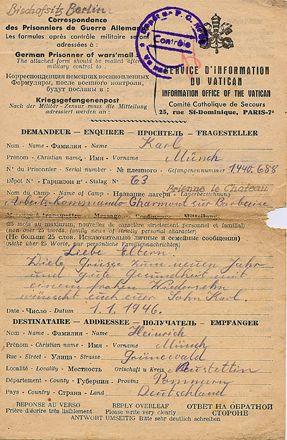 Bischofsitz Berlin.
Correspondance
des Prisonniers de Guerre Allemands
Les formules après contrôle militaire sont
adressées à :
German Prisoner of wars'mail
The attached form should be mailed after
military control to :
Корреспонденция немецких военнопленных
Формуляры, после военного контроля,
будут посланы в :
Kriegsgefangenenpost
Nach der Militär - Zensur muss die Mitteilung
adressiert werden an :
Contrôle
SERVICE D'INFORMATION
DU VATICAN
INFORMATION OFFICE OF THE VATICAN
Comité Catholique de Secours
25, rue St-Dominique, PARIS-7e
DEMANDEUR - ENQUIRER - ПРОСИТЕЛЬ - FRAGESTELLER
Nom - Name - Фамилия - Name Karl
Prénom - Christian name - Имя - Vorname Münch
No du Prisonnier - Serial number - № пленного - Gefangenennummer 1940.688
Dépot - Stalag 63
Brienne le Château
Arbeitskommando Charmont sur Barbuise
(Не больше 25 слов. Исключительно личные и семейные сообщения)
(nicht über 25 Worte, nur persönliche Familiennachrichten)
Liebe Eltern.
Viele Grüsse zum neuen Jahr
und gute Gesundheit und
einem frohen Wiedersehn
wünscht euch euer Sohn Karl.
Date - Число - Datum 1.1.1946.
DESTINATAIRE - ADDRESSEE - ПОЛУЧАТЕЛЬ - EMPFANGER
Nom - Name - Фамилия - Name Heinrich
Prénom - Christian name - Имя - Vorname Münch
Rue - Street - Улица - Strasse Grünewald
Localité - Locality - Местность Ortschaft u Kreis Neustettin
Département - County - Губерния - Provinz Pommern
Pays - Country - Страна - Land Deutschland
REPONSE AU VERSO REPLY OVERLEAF ОТВЕТ НА ОБРАТНОЙ
Prière d'écrire très lisiblement Please write very clearly СТОРОНЕ
ANTWORT UMSEITIG Bitte sehr deutlich schreiben